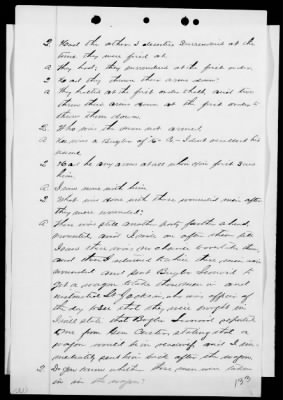 Q. Had the other 2 deserters surrendered at the
time they were fired at.
A They had; they surrendered at the first order.
Q. Had they thrown their arms down?
A They halted at the first order to halt, and two
threw their arms down at the first order to
throw them down.
Q. Who was the man not armed.
A He was a Bugler of Co I dont recollect his
name.
Q Had he any arms at all when you first saw
him.
A I saw none with him.
Q What was done with these wounded men after
they were wounded?
A There was still another party fourth ahead
mounted, and I went on after them till
I saw there was no chance to overtake them,
and then I returned to the three men
wounded and sent Bugler Leonard to
get a wagon to take these men in and
instructed Lt Jackson, who was officer of
the day to see that they were brought in
I will state that Bugler Leonard reported
from Gen Custer, stating that a
wagon would be in readiness, and I im-
mediately sent him back after the wagon.
Q Do you know whether these men were taken
in in the wagon?
133